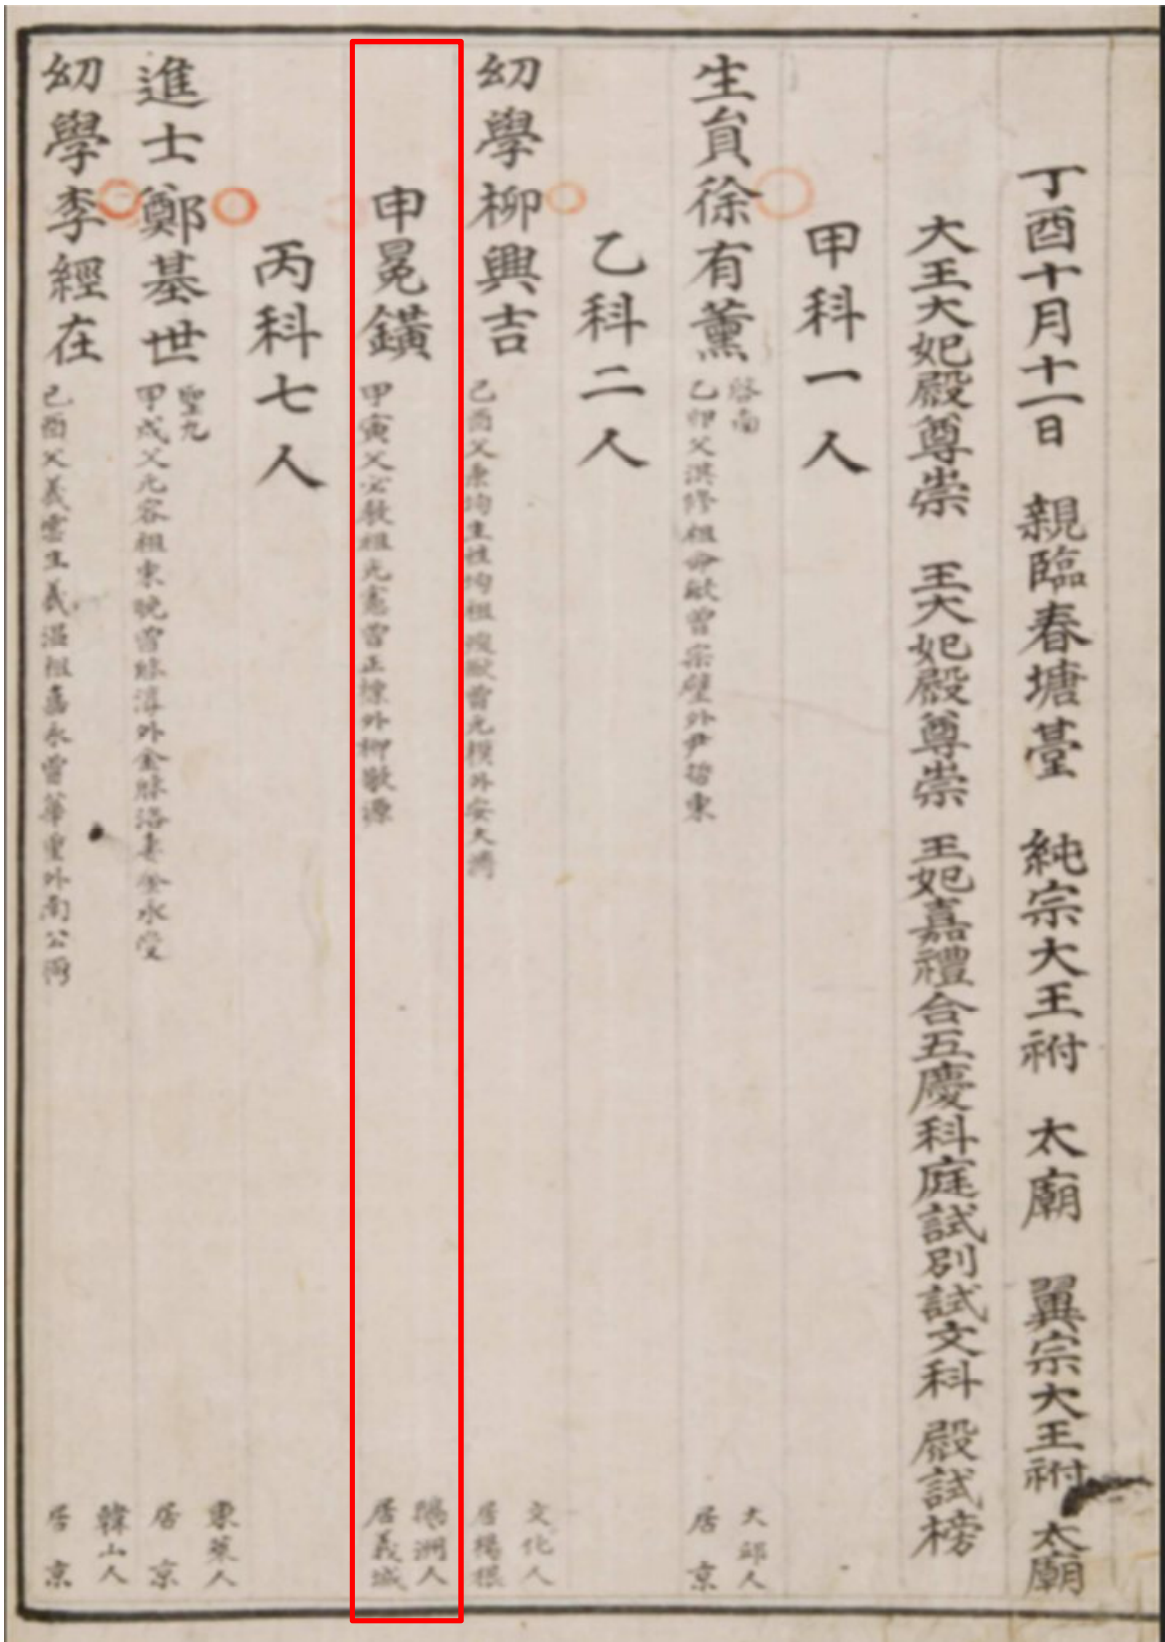 丁酉十月十一日 親臨春塘臺 純宗大王祔 太廟 翼宗大王祔 太廟
大王大妃殿尊崇 王大妃殿尊崇 王妃嘉禮合五慶科庭試別試文科 殿試榜
甲科一人
生員徐有薰 乙卯父淇修祖命敏曾宗璧外尹哲東 大邱人 居京
乙科二人
幼學柳興吉 己酉父 均生 均祖 曾光模外安大濟 文化人 居楊根
申冕鐄 甲寅父必教祖光憲曾正 外柳 源 鵝洲人 居義城
丙科七人
進士鄭基世 聖九 甲戌父元容祖東晚曾 淳外金 洛妻金永受 東萊人 居京
幼學李經在 己酉父義 生義溫祖嘉永曾華重外南公 韓山人 居京